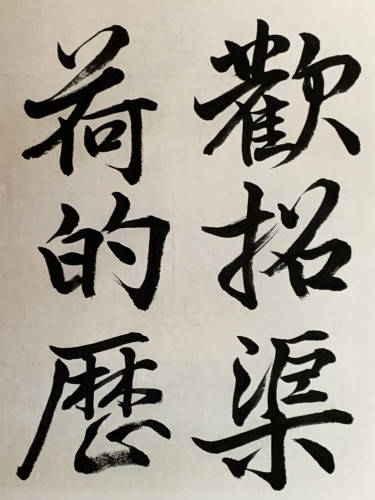 歡招渠
荷的歷